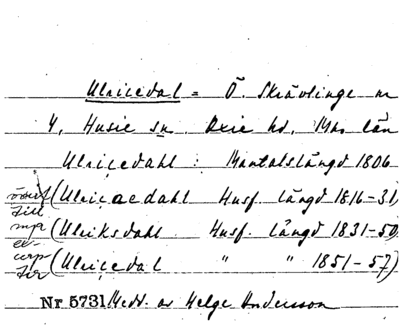 Ulricedal = Ö. Skrävlinge nr
4, Husie sn. Oxie hd, Mhs län
Ulricedahl : Mantalslängd 1806
(Ulricaedahl Husf. längd 1816-31)
(Ulriksdahl Husf. längd 1831-50)
(Ulricedal " " 1851-57)
Nr 5731 Medd. av Helge Andersson